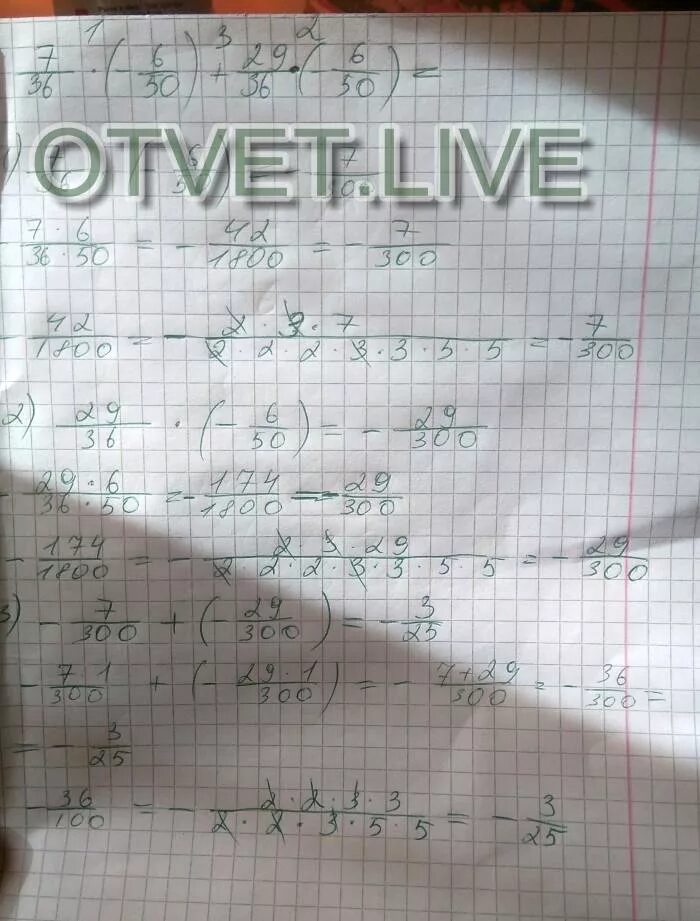 1 3 2
7/36 · (- 6/50) + 29/36 · (- 6/50) =
OTVET.LIVE
- 7 · 6 / 36 · 50 = - 42/1800 = - 7/300
- 42/1800 = - 2 · 3 · 7 / 2 · 2 · 2 · 3 · 3 · 5 · 5 = - 7/300
2) 29/36 · (- 6/50) = - 29/300
- 29 · 6 / 36 · 50 = - 174/1800 = - 29/300
- 174/1800 = - 2 · 3 · 29 / 2 · 2 · 2 · 3 · 3 · 5 · 5 = - 29/300
3) - 7/300 + (- 29/300) = - 3/25
- 7 · 1 / 300 + (- 29 · 1 / 300) = - 7 + 29 / 300 = - 36/300 =
= - 3/25
- 36/100 = - 2 · 2 · 3 · 3 / 2 · 2 · 3 · 5 · 5 = - 3/25